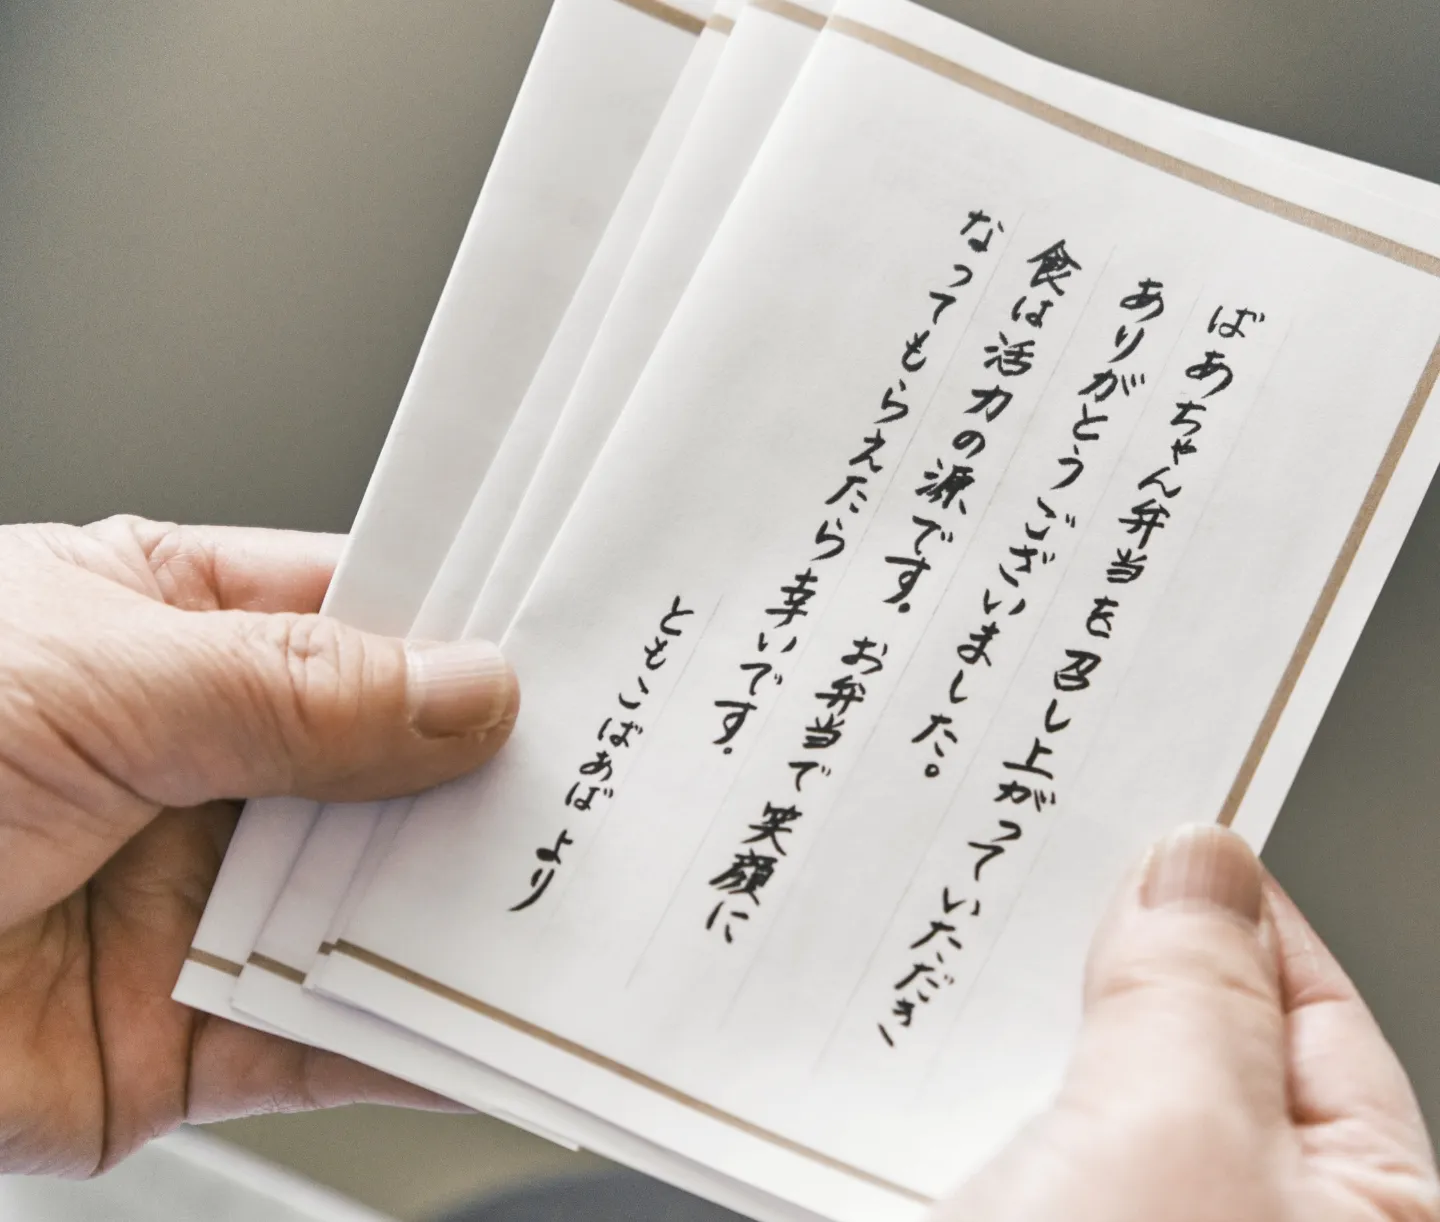 ばあちゃん弁当を召し上がっていただき、
ありがとうございました。
食は活力の源です。お弁当で笑顔に
なってもらえたら幸いです。
ともこばあばより